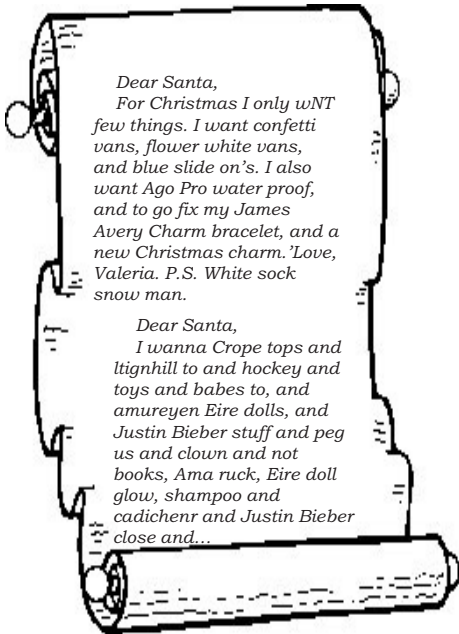 Dear Santa,
For Christmas I only wNT
few things. I want confetti
vans, flower white vans,
and blue slide on’s. I also
want Ago Pro water proof,
and to go fix my James
Avery Charm bracelet, and a
new Christmas charm.’Love,
Valeria. P.S. White sock
snow man.
Dear Santa,
I wanna Crope tops and
ltignhill to and hockey and
toys and babes to, and
amureyen Eire dolls, and
Justin Bieber stuff and peg
us and clown and not
books, Ama ruck, Eire doll
glow, shampoo and
cadichenr and Justin Bieber
close and...